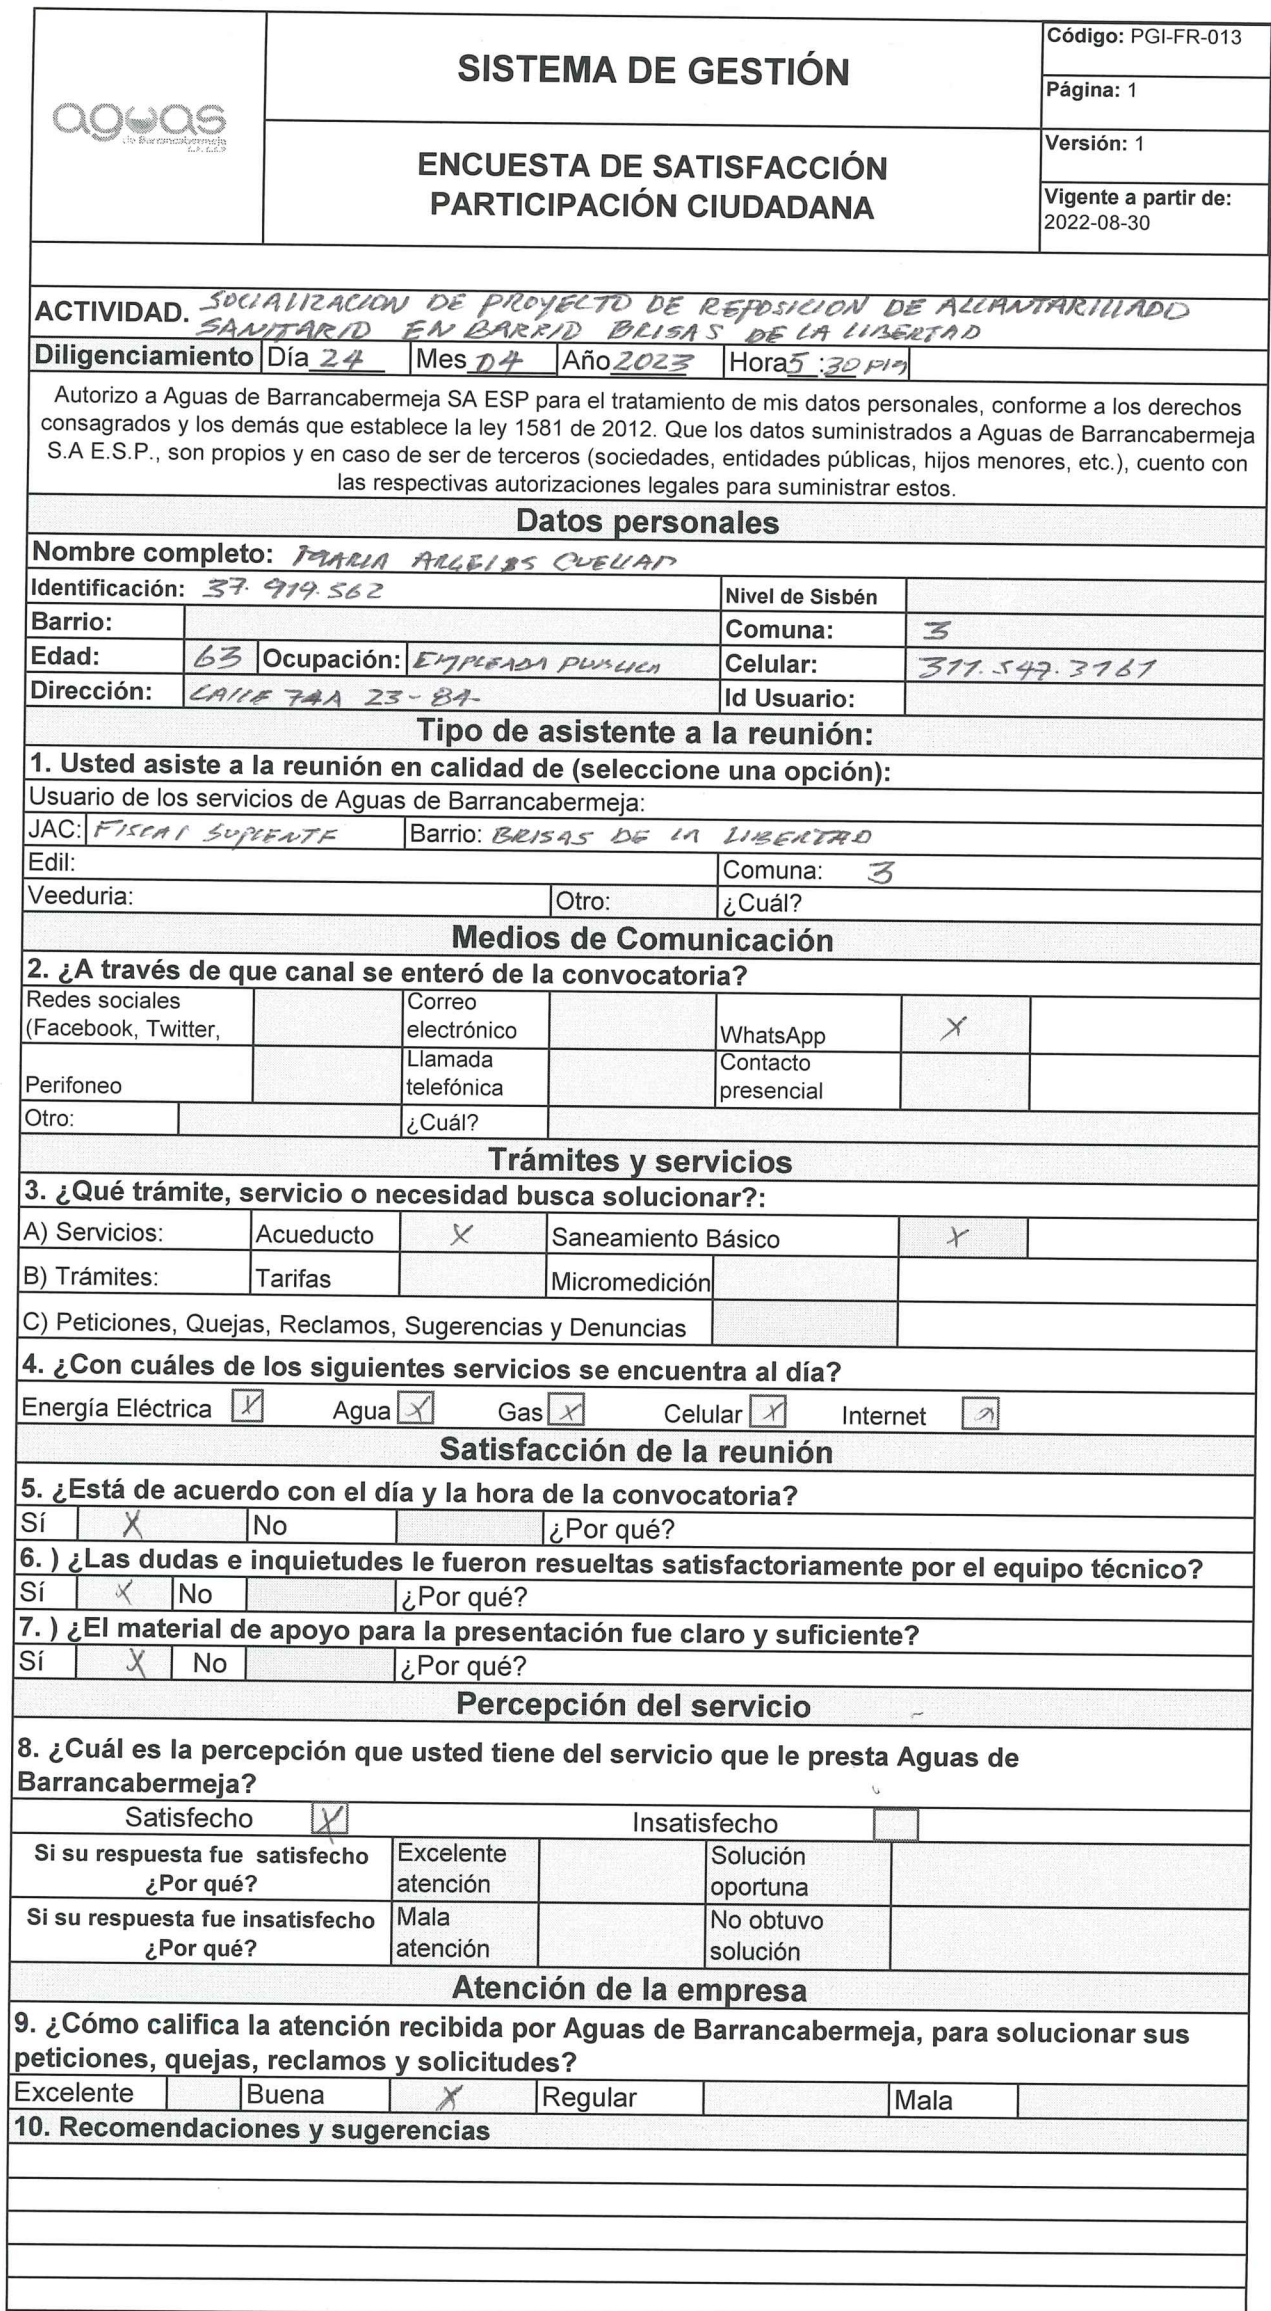 aguas
de Barrancabermeja
S.A. E.S.P
SISTEMA DE GESTIÓN
Código: PGI-FR-013
Página: 1
ENCUESTA DE SATISFACCIÓN
PARTICIPACIÓN CIUDADANA
Versión: 1
Vigente a partir de:
2022-08-30
ACTIVIDAD. SOCIALIZACION DE PROYECTO DE REPOSICION DE ALCANTARILLADO
SANITARIO EN BARRIO BRISAS DE LA LIBERTAD
Diligenciamiento Día 24 Mes 04 Año 2023 Hora 5:30 pm
Autorizo a Aguas de Barrancabermeja SA ESP para el tratamiento de mis datos personales, conforme a los derechos
consagrados y los demás que establece la ley 1581 de 2012. Que los datos suministrados a Aguas de Barrancabermeja
S.A E.S.P., son propios y en caso de ser de terceros (sociedades, entidades públicas, hijos menores, etc.), cuento con
las respectivas autorizaciones legales para suministrar estos.
Datos personales
Nombre completo: MARIA CUELLAR
Identificación: 37.919.562 Nivel de Sisbén
Barrio: Comuna: 3
Edad: 63 Ocupación: EMPLEADA PUBLICA Celular: 311.547.3161
Dirección: CALLE 74A 23-84- Id Usuario:
Tipo de asistente a la reunión:
1. Usted asiste a la reunión en calidad de (seleccione una opción):
Usuario de los servicios de Aguas de Barrancabermeja:
JAC: FISCAL SUPLENTE Barrio: BRISAS DE LA LIBERTAD
Edil: Comuna: 3
Veeduria: Otro: ¿Cuál?
Medios de Comunicación
2. ¿A través de que canal se enteró de la convocatoria?
Redes sociales
(Facebook, Twitter, Correo
electrónico WhatsApp X
Perifoneo Llamada
telefónica Contacto
presencial
Otro: ¿Cuál?
Trámites y servicios
3. ¿Qué trámite, servicio o necesidad busca solucionar?:
A) Servicios: Acueducto X Saneamiento Básico X
B) Trámites: Tarifas Micromedición
C) Peticiones, Quejas, Reclamos, Sugerencias y Denuncias
4. ¿Con cuáles de los siguientes servicios se encuentra al día?
Energía Eléctrica X Agua X Gas X Celular X Internet
Satisfacción de la reunión
5. ¿Está de acuerdo con el día y la hora de la convocatoria?
Sí X No ¿Por qué?
6. ) ¿Las dudas e inquietudes le fueron resueltas satisfactoriamente por el equipo técnico?
Sí X No ¿Por qué?
7. ) ¿El material de apoyo para la presentación fue claro y suficiente?
Sí X No ¿Por qué?
Percepción del servicio
8. ¿Cuál es la percepción que usted tiene del servicio que le presta Aguas de
Barrancabermeja?
Satisfecho X Insatisfecho
Si su respuesta fue satisfecho
¿Por qué? Excelente
atención Solución
oportuna
Si su respuesta fue insatisfecho
¿Por qué? Mala
atención No obtuvo
solución
Atención de la empresa
9. ¿Cómo califica la atención recibida por Aguas de Barrancabermeja, para solucionar sus
peticiones, quejas, reclamos y solicitudes?
Excelente Buena X Regular Mala
10. Recomendaciones y sugerencias